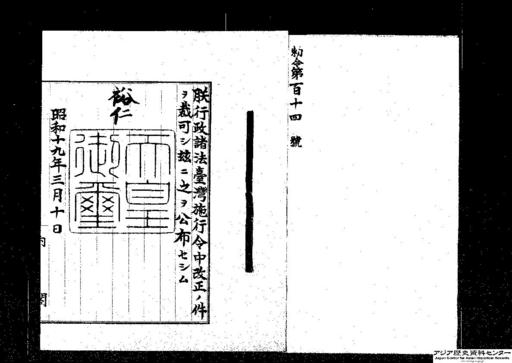 勅令第百十四號
朕行政諸法臺灣施行令中改正ノ件
ヲ裁可シ玆ニ之ヲ公布セシム
裕仁
天皇
御璽
昭和十九年三月十日
内閣
アジア歴史資料センター
Japan Center for Asian Historical Records